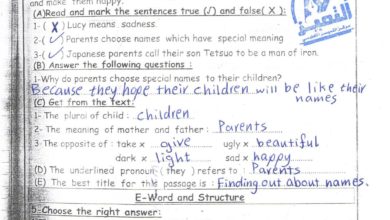 and make them happy.
(A)Read and mark the sentences true (√) and false( X ):
1- ( X ) Lucy means sadness.
2- ( ✓ ) Parents choose names which have special meaning
3- ( ✓ ) Japanese parents call their son Tetsuo to be a man of iron.
(B) Answer the following questions :
1-Why do parents choose special names to their children?
Because they hope their children will be like their names
(C) Get from the Text:
1- The plural of child : children
2- The meaning of mother and father : Parents
3-The opposite of : take × give ugly × beautiful
dark × light sad × happy
(D) The underlined pronoun ( they ) refers to : Parents
(E) The best title for this passage is : Finding out about names.
E-Word and Structure
5-Choose the right answer: